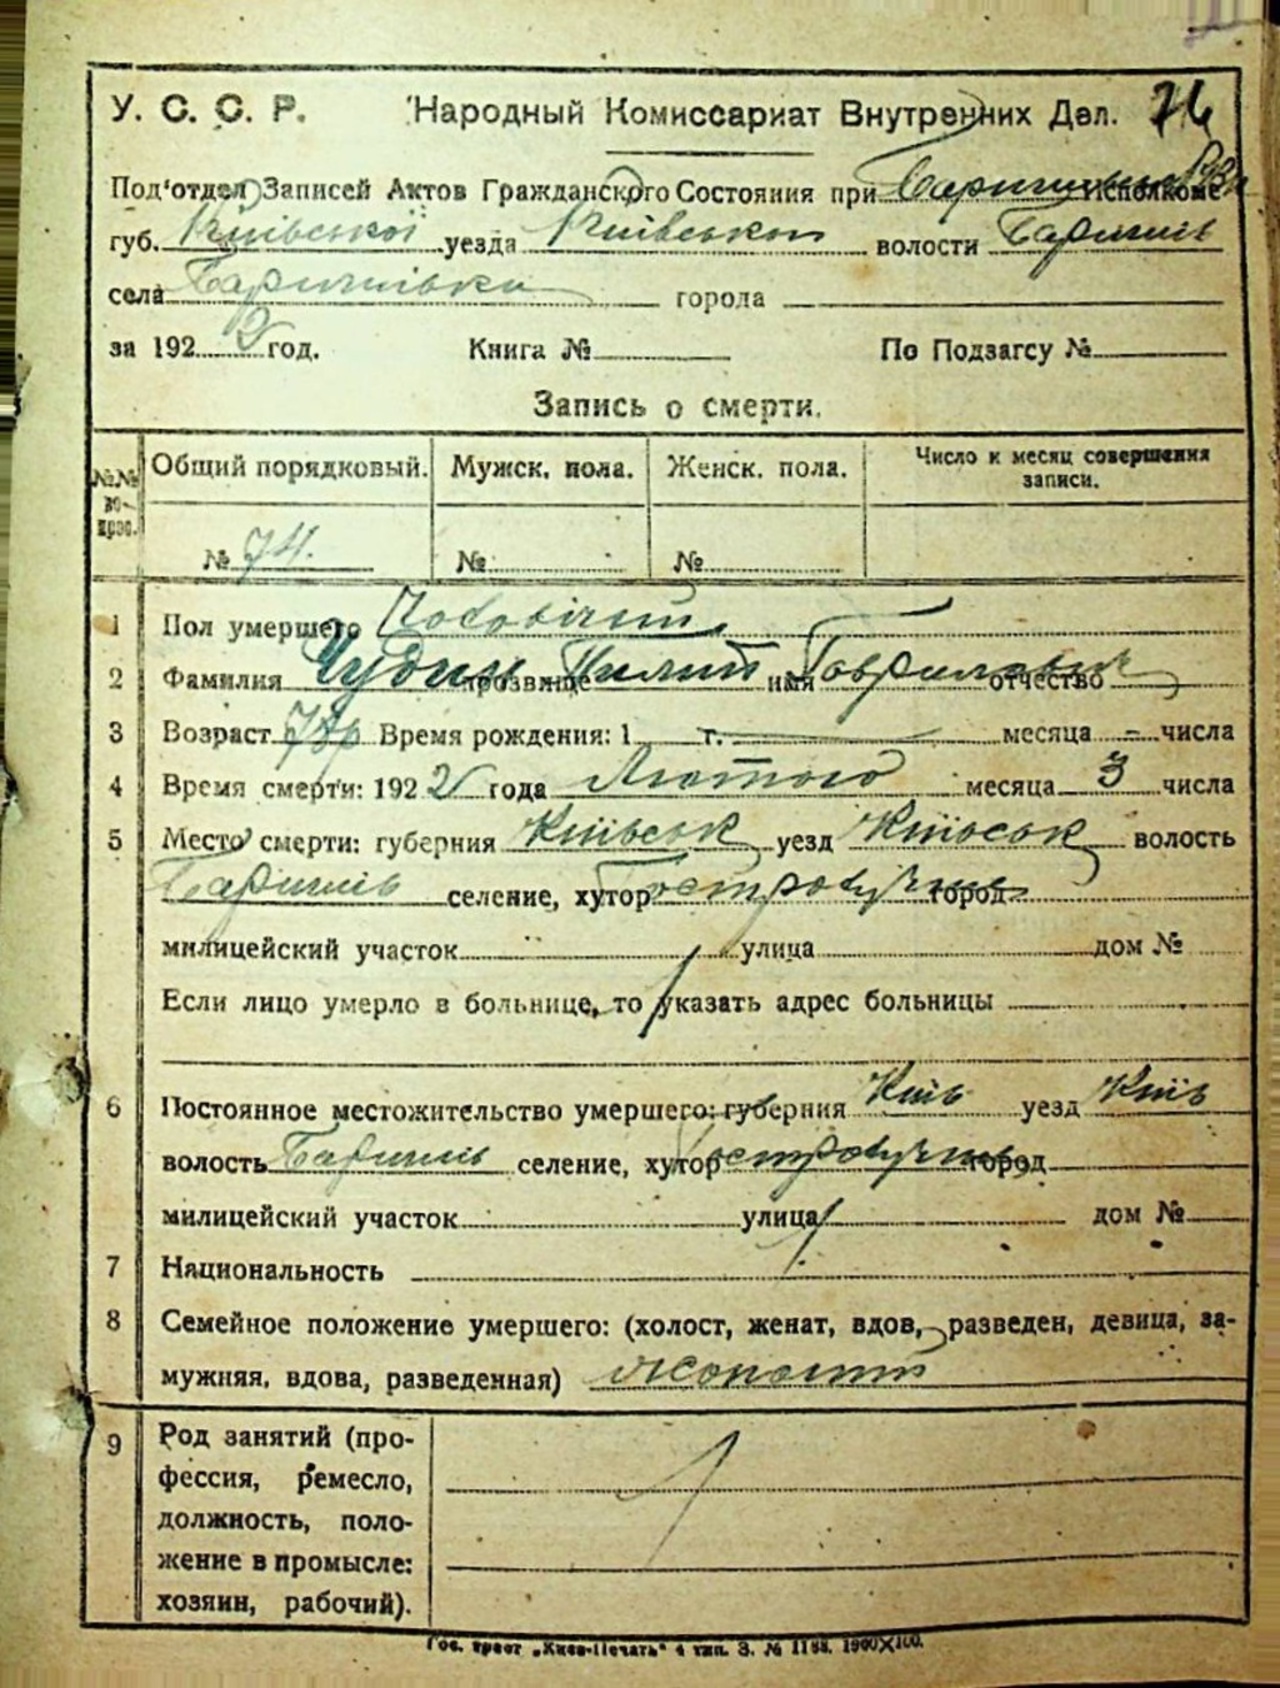 У. С. С. Р. Народный Комиссариат Внутренних Дел. 76
Под'отдел Записей Актов Гражданского Состояния при Исполкоме
губ. Київської уезда Київськом волости Баришів
села Баришівки города
за 1922 год. Книга № По Подзагсу №
Запись о смерти.
№№ вопрос. Общий порядковый. Мужск. пола. Женск. пола. Число и месяц совершения записи.
№ 74. № №
1 Пол умершего Чоловічий
2 Фамилия Чудин прозвище Пилип имя Гаврилович отчество
3 Возраст Время рождения: 1 г. месяца - числа
4 Время смерти: 1922 года Лютого месяца 3 числа
5 Место смерти: губерния Київськ уезд Київськ волость
Баришів селение, хутор Гостролуччє город
милицейский участок улица дом №
Если лицо умерло в больнице, то указать адрес больницы
6 Постоянное местожительство умершего: губерния Київ уезд Київ
волость Баришів селение, хутор Гостролуччє город
милицейский участок улица дом №
7 Национальность
8 Семейное положение умершего: (холост, женат, вдов, разведен, девица, за-
мужняя, вдова, разведенная) жонатий
9 Род занятий (про-
фессия, ремесло,
должность, поло-
жение в промысле:
хозяин, рабочий).
Гос. трест „Киев-Печать" 4 тип. З. № 1188. 1900X100.